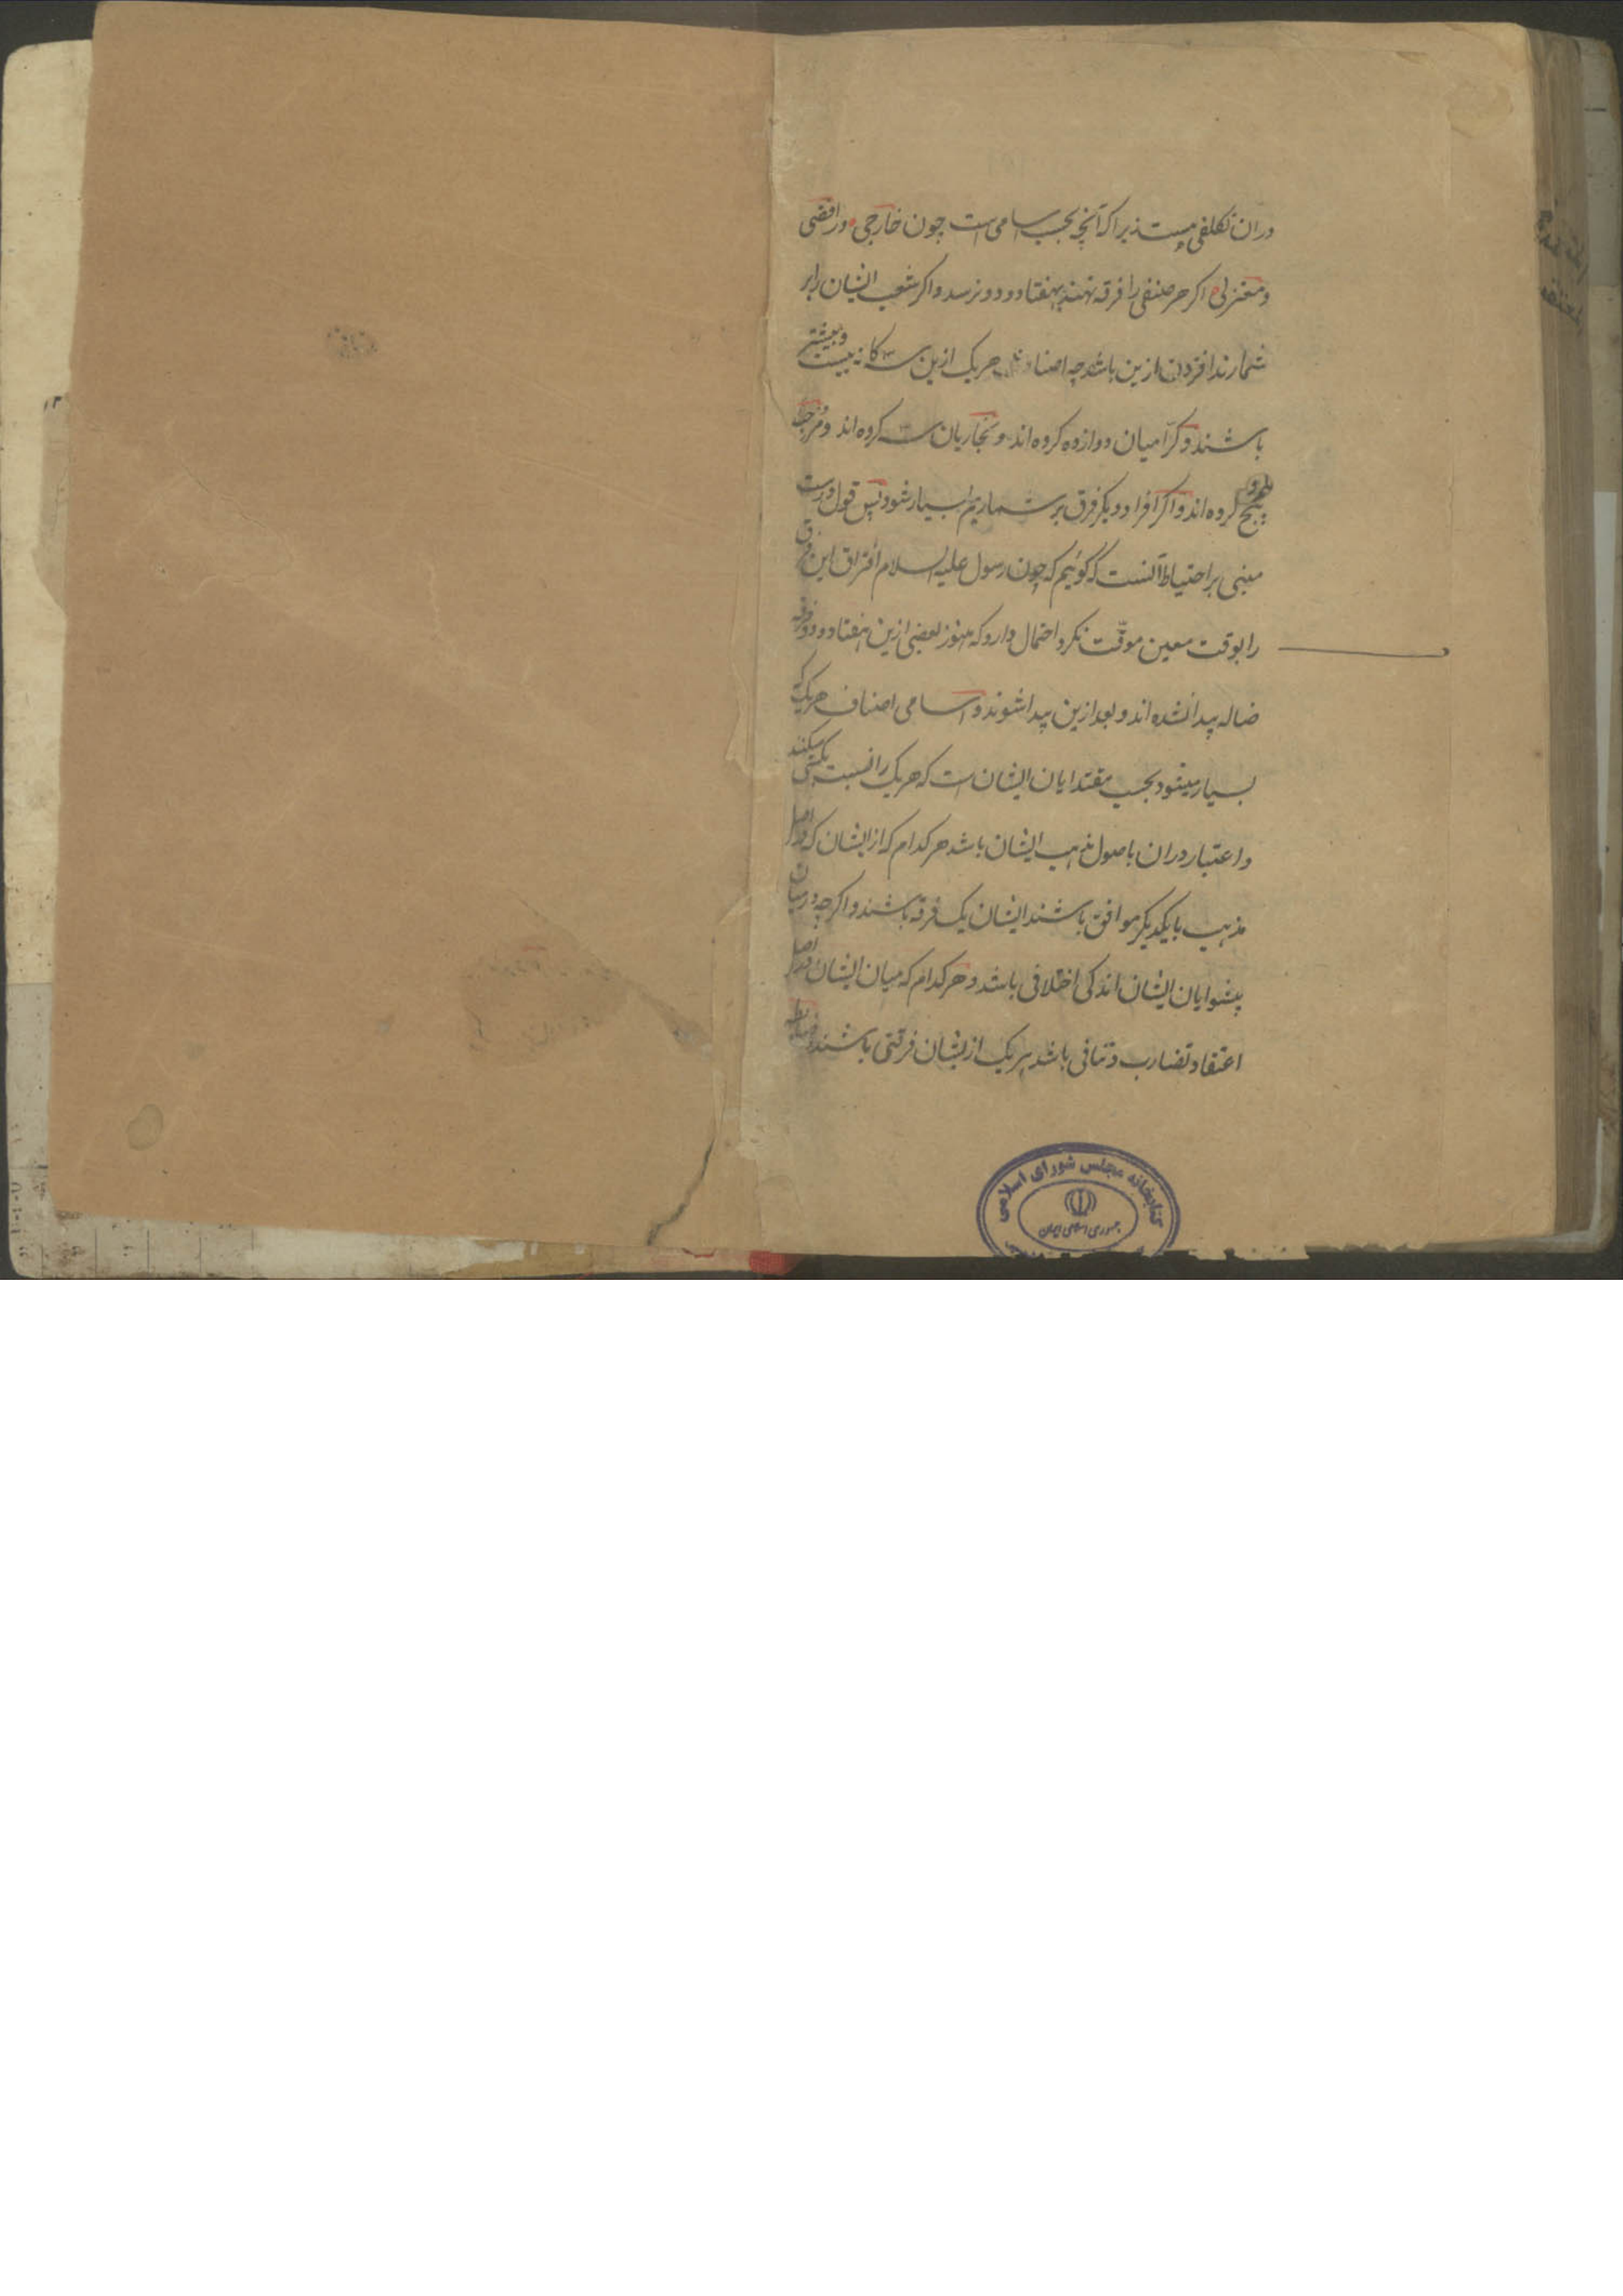 دران تکلفی هست زیرا که آنچه بحسب اسامی است چون خارجی و رافضی
و معتزلی اگر هر صنفی را فرقه نهند بهفتاد و دو نرسد و اگر شعب ایشان را بر
شمارند افزون ازین باشد چه اصناف هریک ازین سه کانه بیست و بیشتر
باشند و کرّامیان دوازده کروه اند و نجّاریان سه کروه اند و مرجیا
پنج کروه اند و اگر افراد دیگر فرق بر شماریم بسیار شود پس قول درست
مبنی بر احتیاط آنست که گوئیم که چون رسول علیه السلام افتراق این فرق
را بوقت معین موقّت نکرد احتمال دارد که هنوز بعضی ازین هفتاد و دو فرقه
ضاله پیدا نشده اند و بعد ازین پیدا شوند و اسامی اصناف هریک که
بسیار میشود بحسب مقتدایان ایشان است که هریک را نسبت بکسی میکنند
و اعتبار دران باصول مذهب ایشان باشد هر کدام که از ایشان که در اصل
مذهب با یکدیگر موافق باشند ایشان یک فرقه باشند و اگر چه در میان
پیشوایان ایشان اندکی اختلافی باشد و هر کدام که میان ایشان در اصل
اعتقاد تضارب و تنافی باشد هر یک از یشان فرقتی باشند
کتابخانه مجلس شورای اسلامی
جمهوری اسلامی ایران